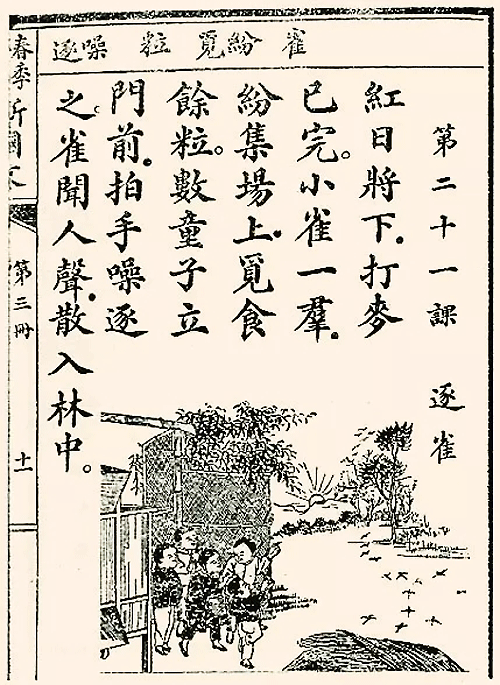 雀 紛 覓 粒 噪 逐
第二十一課 逐雀
紅日將下.打麥
已完。小雀一羣.
紛集場上.覓食
餘粒。數童子立
門前.拍手噪逐
之。雀聞人聲.散入林中。
春季新國文
第三冊
十一